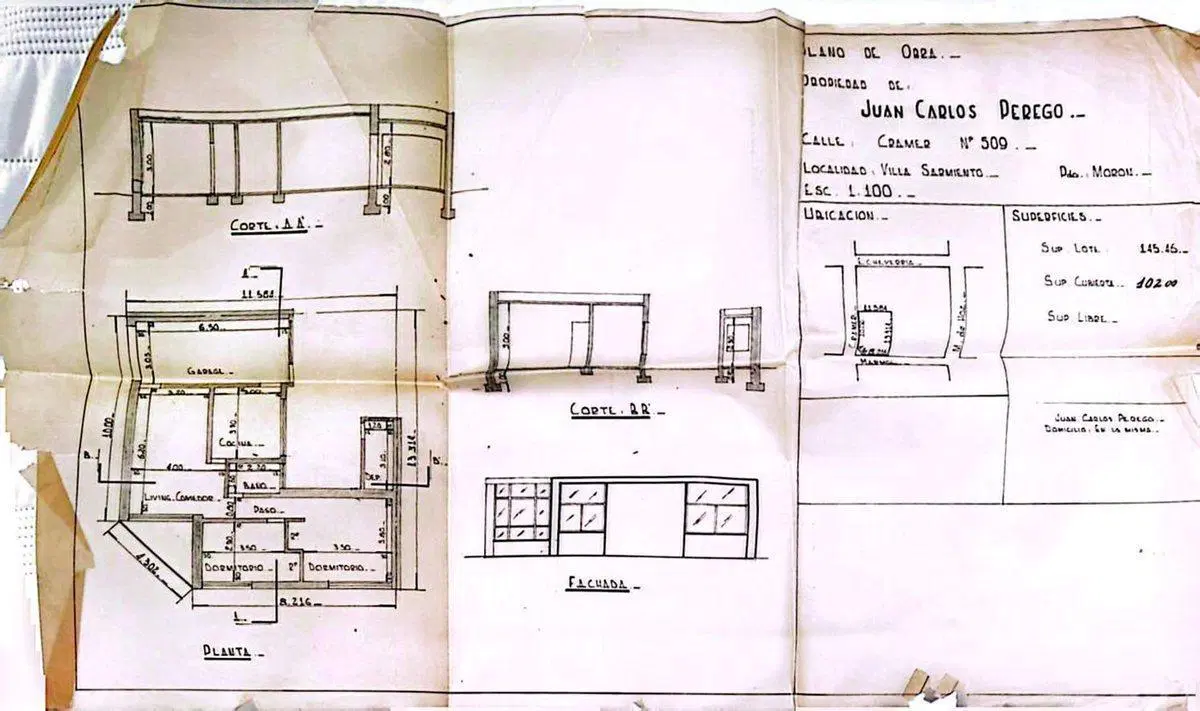 PLANO DE OBRA._
PROPIEDAD DE:
JUAN CARLOS PEREGO._
CALLE: CRAMER Nº 509._
LOCALIDAD: VILLA SARMIENTO._ Pdo. MORON._
ESC. 1.100._
UBICACION._
SUPERFICIES._
SUP. LOTE. 145.46._
SUP CUBIERTA._ 102.00
SUP. LIBRE._
E. ECHEVERRIA
CRAMER
11.581
13.314
MARMOL
JUAN CARLOS PEREGO._
DOMICILIO: EN LA MISMA._
3.00
2.80
CORTE. AA'._
11.581
6.50
3.05
GARAGE._
10.00
COCINA._
4.00
2.20
BAÑO._
LIVING. COMEDOR
PASO._
DEP.
B.
B'.
13.314
3.50
3.50
DORMITORIO._
DORMITORIO._
4.302
8.216
PLANTA._
3.00
CORTE. BB'._
FACHADA._